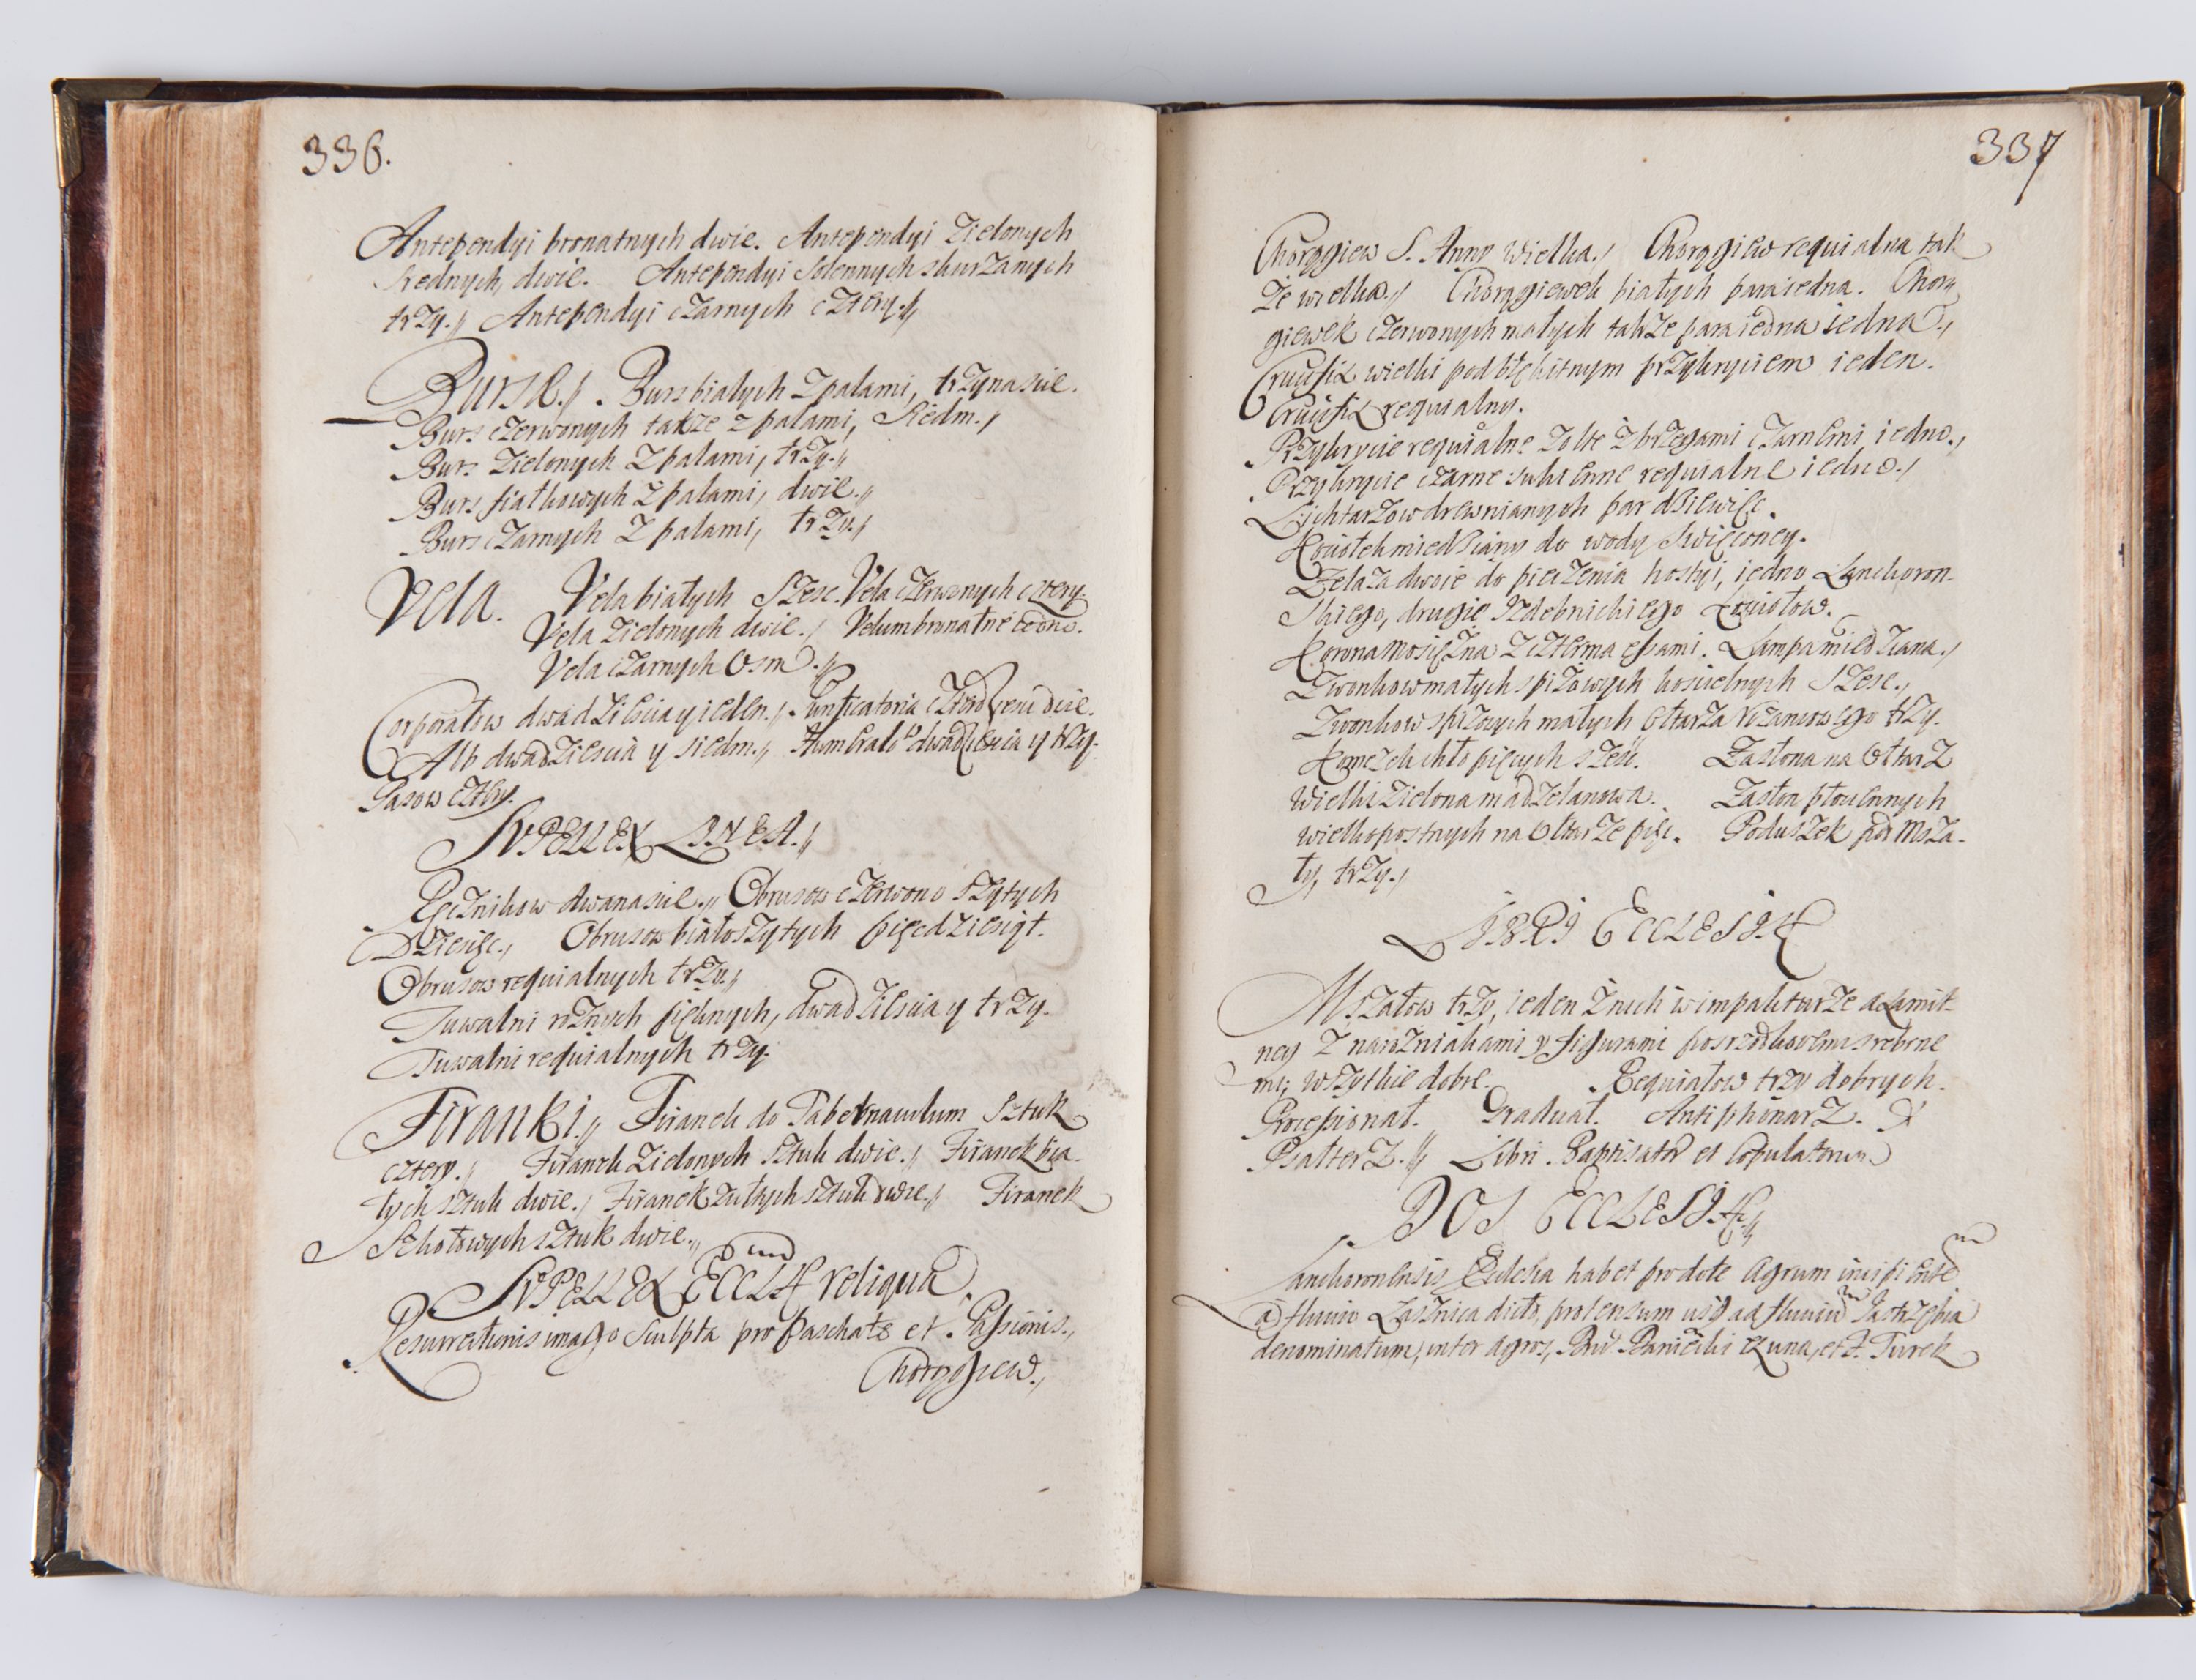 336.
Antependyi bronatnych dwie. Antependyi Zielonych
srednych, dwie. Antependyi Solennych skurzanych
trzy.,, Antependyi czarnych cztery.,,
Bursæ.,, Burs białych z palami, trzynascie.
Burs czerwonych takze z palami, Siedm.,
Burs Zielonych z palami, trzy.,,
Burs fiałkowych z palami, dwie.,,
Burs czarnych z palami, trzy.,
Vela. Vela białych Szesc. Vela czerwonych cztery.
Vela Zielonych dwie., Velum brunatne iedno.
Vela czarnych Osm.,,
Corporałow dwadziescia y ieden., Purificatoria czterdziesci dwie.
Alb dwadziescia y siedm.,, Humerałow dwadziescia y trzy.
Pasow cztery.
SVPELLEX LINEA.,,
Ręcznikow dwanascie.,, Obrusow czerwono szytych
Dziesięc., Obrusow biało szytych pięcdziesiąt.
Obrusow requialnych trzy.,,
Tuwalni roznych pięknych, dwadziescia y trzy.
Tuwalni requialnych trzy.
Firanki.,, Firanek do Tabernaculum Sztuk
cztery., Firanek Zielonych Sztuk dwie., Firanek bia-
łych sztuk dwie., Firanek zułtych sztuk dwie., Firanek
sztuk dwie.,,
SVPELLEX ECCLÆ reliqua.
Resurrectionis imago sculpta pro Paschate et Passionis.,
Chorągiew.,
337
Chorągiew S. Anny wielka., Chorągiew requialna tak
ze wielka., Chorągiewek białych para iedna. Chorą
giewek czerwonych małych takze para iedna iedna.,
Crucifix wielki pod błękitnym przykryciem ieden.
Crucifix requialny.
Przykrycie requialne zołte z brzegami czarnemi iedno.,
Przykrycie czarne sukienne requialne iedno.,
Lichtarzow drewnianych par dziewięc.
Kociołek miedziany do wody Swięconey.
Zelaza dwoie do pieczenia hostyi, iedno Lanckoron-
skiego, drugie Izdebnickiego Kosciołow.
Korona mosięzna z czterma essami. Lampa miedziana.,
Dzwonkow małych spizowych koscielnych Szesc.,
Dzwonkow spizowych małych Ołtarza Rozancowego trzy.
Komezek chłopięcych szesc. Zasłona na Ołtarz
Wielki Zielona madzelanowa. Zasłon płociennych
wielkopostnych na Ołtarze pięc. Poduszek pod Msza-
ły, trzy.,
LIBRI ECCLESIÆ
Mszałow trzy, ieden z nich w impakturze axamit-
ney z naroznikami y figurami posrzodkowemi srebrne
mi, wszytkie dobre. Requiałow trzy dobrych.
Processionał. Graduał. Antiphonarz. &
Psałterz.,, Libri Baptisator et Copulatorum
DOS ECCLESIÆ.,,
Lanckoronensis Ecclesia habet pro dote Agrum incipiente
a fluvio dicto, protensum usq ad fluviu Jastrzębia
denominatum, inter agros, et J. Turek